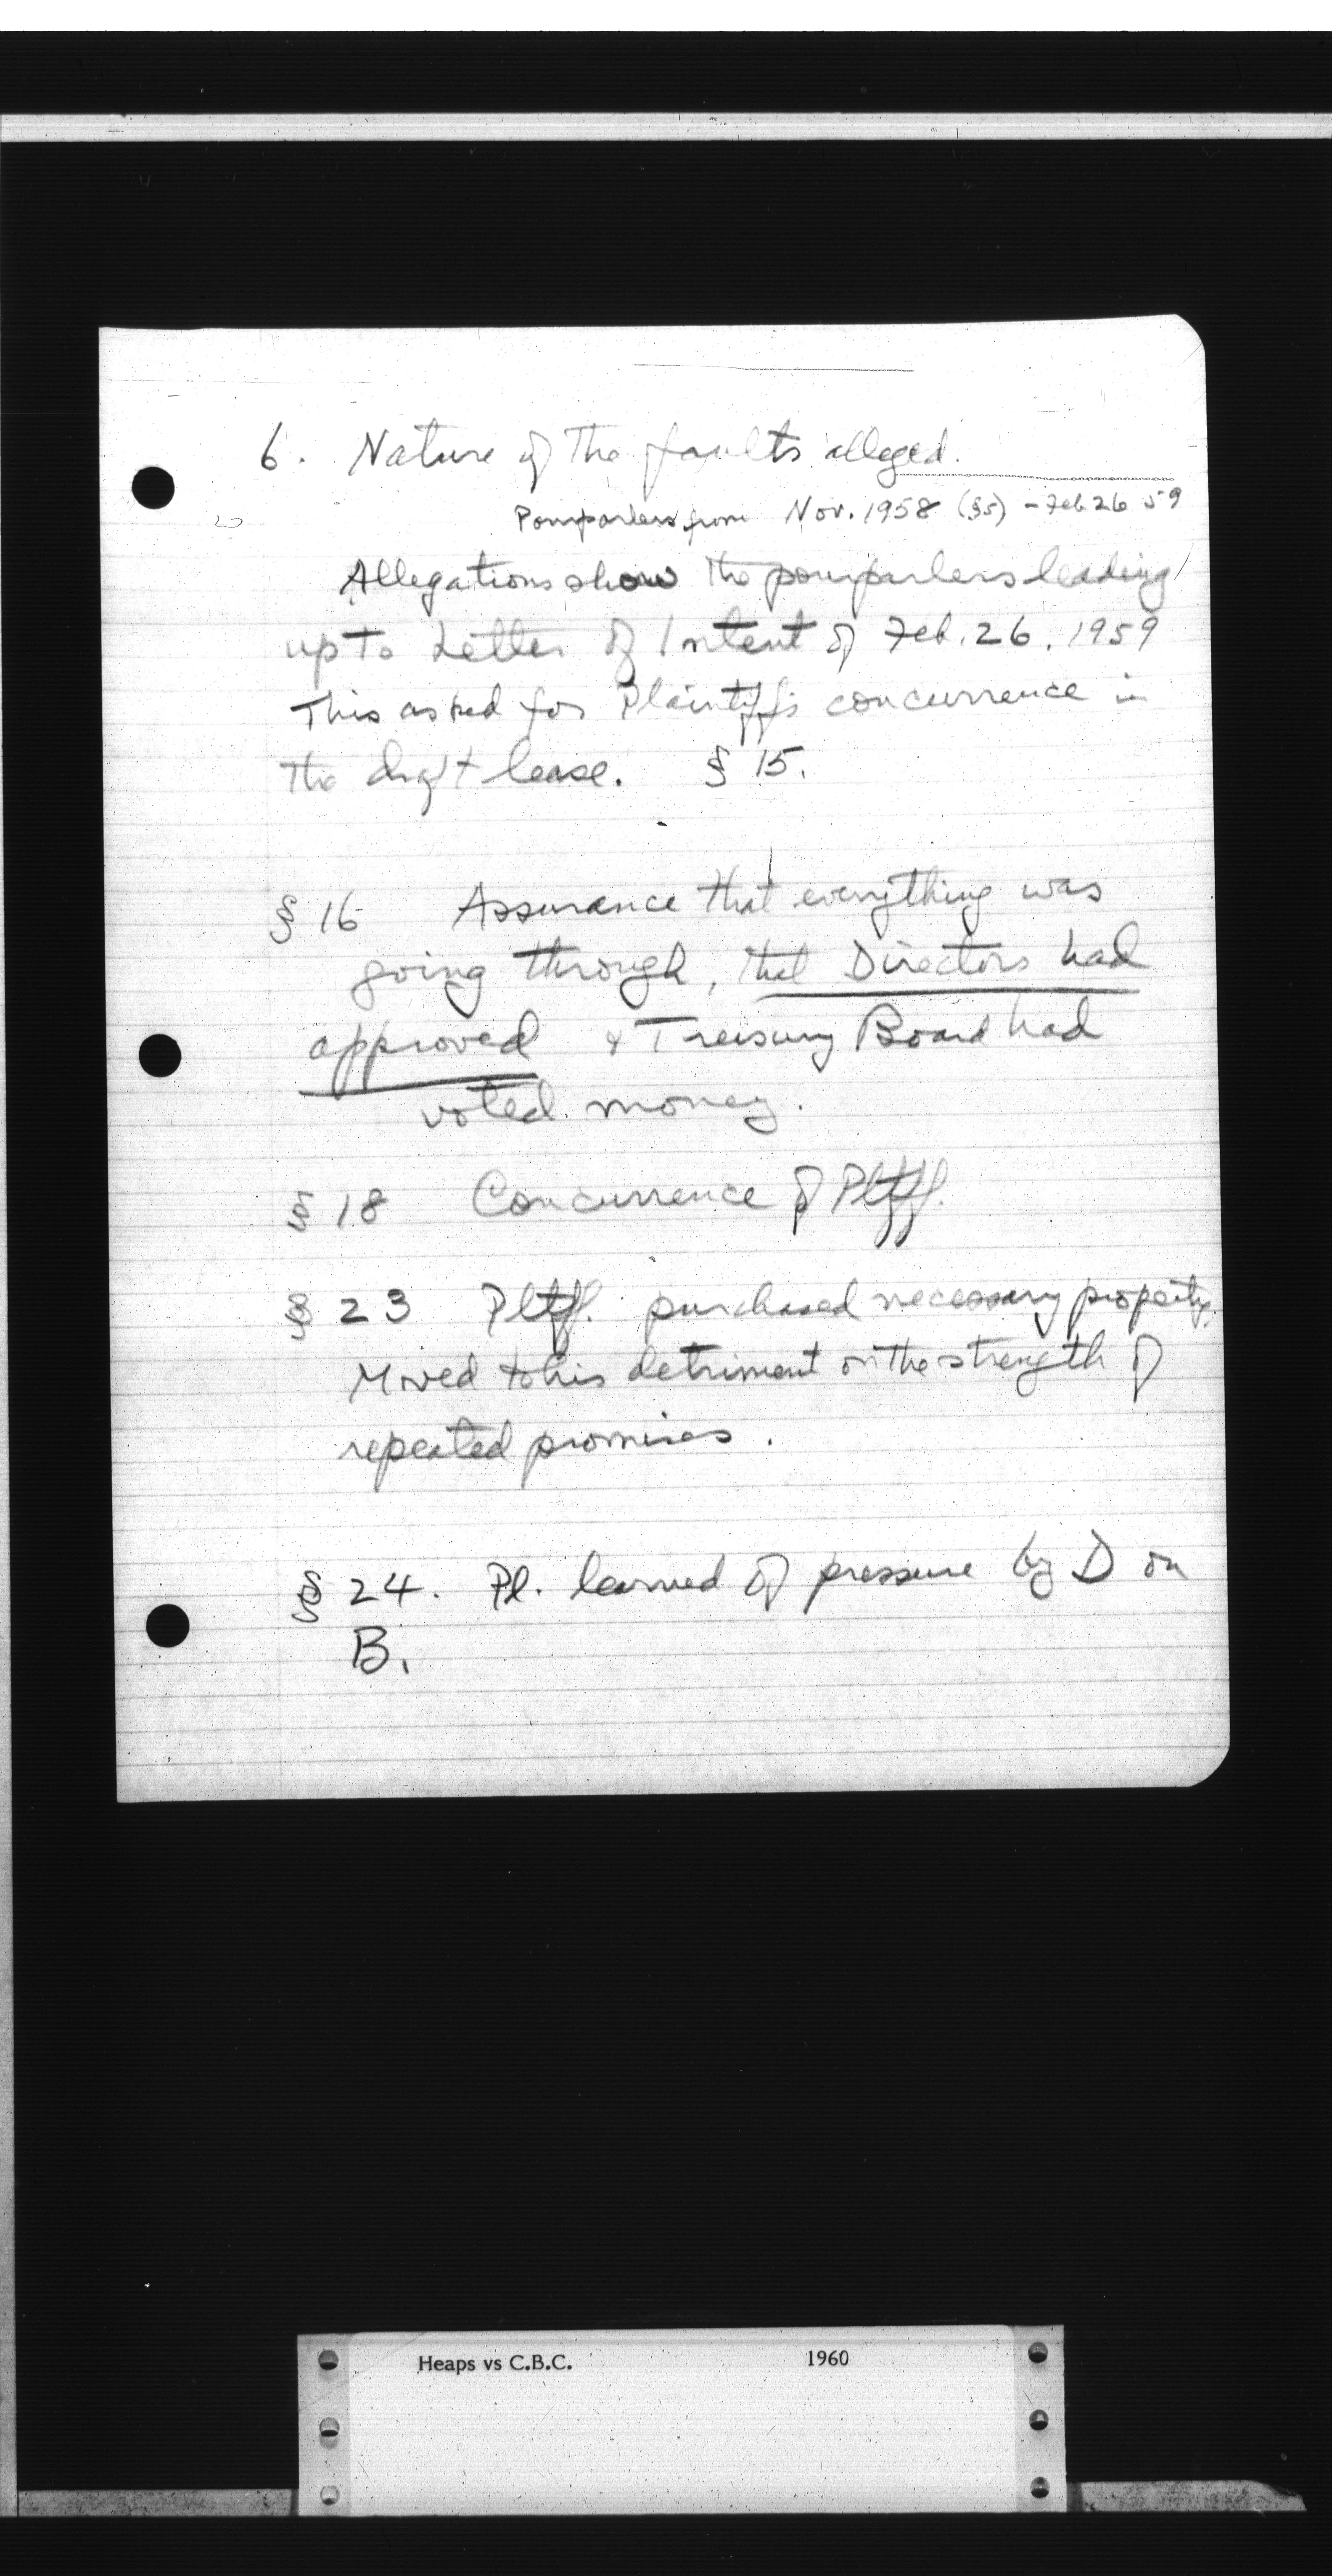 6. Nature of the faults alleged.
Pourparlers from Nov. 1958 (§5) - Feb 26 59
Allegations show the pourparlers leading
up to Letter of Intent of Feb. 26. 1959
This asked for Plaintiff's concurrence in
the draft lease. § 15.
§ 16 Assurance that everything was
going through, that Directors had
approved & Treasury Board had
voted money.
§ 18 Concurrence of Pltff.
§ 23 Pltff. purchased necessary property.
Moved to his detriment on the strength of
repeated promises.
§ 24. Pl. learned of pressure by D on
B.
Heaps vs C.B.C. 1960